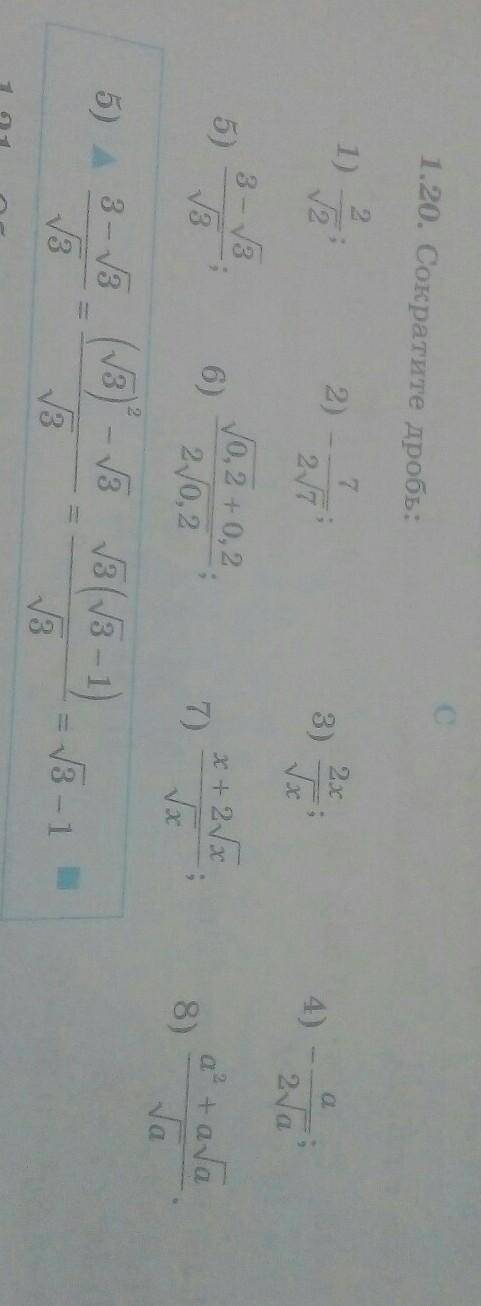 С
1.20. Сократите дробь:
1) 2/√2; 2) −7/(2√7); 3) 2x/√x; 4) −a/(2√a);
5) (3−√3)/√3; 6) (√0,2+0,2)/(2√0,2); 7) (x+2√x)/√x; 8) (a²+a√a)/√a.
5) ▲ (3−√3)/√3 = ((√3)²−√3)/√3 = √3(√3−1)/√3 = √3−1 ■